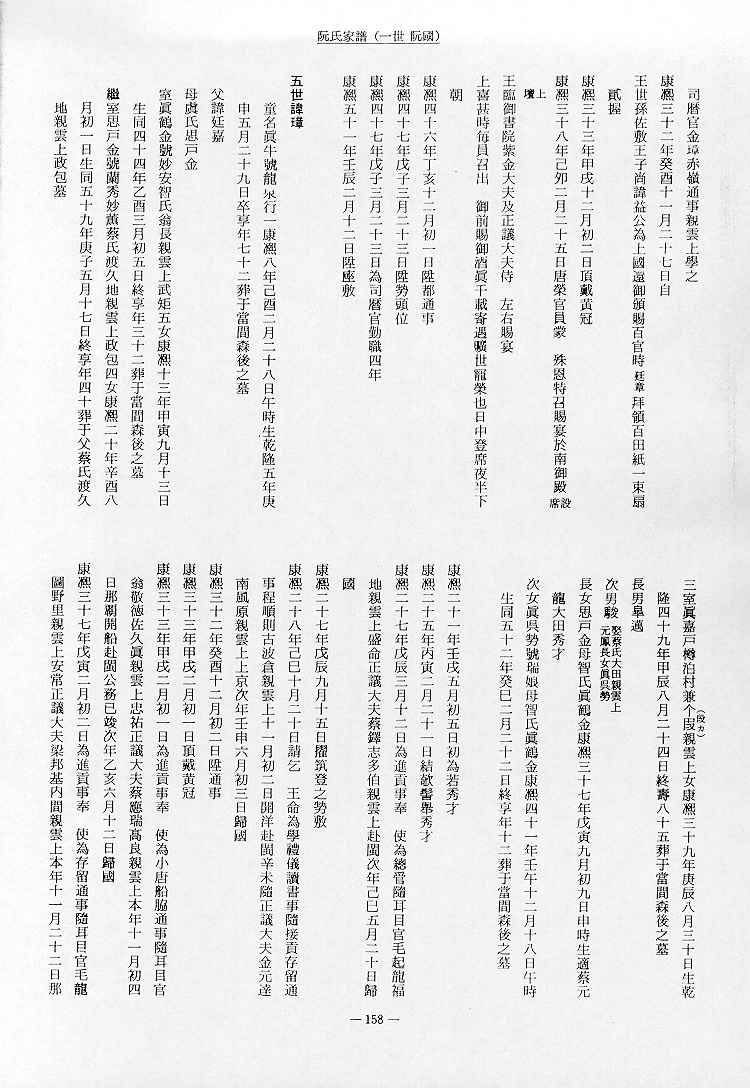 阮氏家譜（一世 阮國）
司曆官金璋赤嶺通事親雲上學之
康熙三十二年癸酉十一月二十七日自
王世孫佐敷王子尚諱益公為上國還御頒賜百官時廷章拜領百田紙一束扇
貳握
康熙三十三年甲戌十二月初二日頂戴黃冠
康熙三十八年己卯二月二十五日唐榮官員蒙　殊恩特召賜宴於南御殿設席
上壇
王臨御書院紫金大夫及正議大夫侍　左右賜宴
上喜甚時每員召出　御前賜御酒眞千載寄遇曠世寵榮也日中登席夜半下
朝
康熙四十六年丁亥十二月初一日陞都通事
康熙四十七年戊子三月二十三日陞勢頭位
康熙四十七年戊子三月二十三日為司曆官勤職四年
康熙五十一年壬辰二月十二日陞座敷
五世諱瑋
童名眞牛號龍泉行一康熙八年己酉二月二十八日午時生乾隆五年庚
申五月二十九日卒享年七十二葬于當間森後之墓
父諱廷嘉
母虞氏思戶金
室眞鶴金號妙安智氏翁長親雲上武矩五女康熙十三年甲寅九月十三日
生同四十四年乙酉三月初五日終享年三十二葬于當間森後之墓
繼室思戶金號蘭秀妙薰蔡氏渡久地親雲上政包四女康熙二十年辛酉八
月初一日生同五十九年庚子五月十七日終享年四十葬于父蔡氏渡久
地親雲上政包墓
三室眞嘉戶樽泊村兼个段（段カ）親雲上女康熙三十九年庚辰八月三十日生乾
隆四十九年甲辰八月二十四日終壽八十五葬于當間森後之墓
長男阜適
次男駿 娶蔡氏大田親雲上元鳳長女眞吳勢
長女思戶金母智氏眞鶴金康熙三十七年戊寅九月初九日申時生適蔡元
龍大田秀才
次女眞吳勢號瑞娘母智氏眞鶴金康熙四十一年壬午十二月十八日午時
生同五十二年癸巳二月二十二日終享年十二葬于當間森後之墓
康熙二十一年壬戌五月初五日初為若秀才
康熙二十五年丙寅二月二十一日結欹髻舉秀才
康熙二十七年戊辰三月十二日為進貢事奉　使為總管隨耳目官毛起龍福
地親雲上盛命正議大夫蔡鐸志多伯親雲上赴閩次年己巳五月二十日歸
國
康熙二十七年戊辰九月十五日擢筑登之勢敷
康熙二十八年己巳十月二十日請乞　王命為學禮儀讀書事隨接貢存留通
事程順則古波倉親雲上十一月初二日開洋赴閩辛未隨正議大夫金元達
南風原親雲上上京次年壬申六月初三日歸國
康熙三十二年癸酉十二月初二日陞通事
康熙三十三年甲戌二月初一日頂戴黃冠
康熙三十三年甲戌二月初一日為進貢事奉　使為小唐船脇通事隨耳目官
翁敬德佐久眞親雲上忠祐正議大夫蔡應瑞高良親雲上本年十一月初四
日那覇開船赴閩公務已竣次年乙亥六月十二日歸國
康熙三十七年戊寅二月初二日為進貢事奉　使為存留通事隨耳目官毛龍
圖野里親雲上安常正議大夫梁邦基內間親雲上本年十一月二十二日那
— 158 —